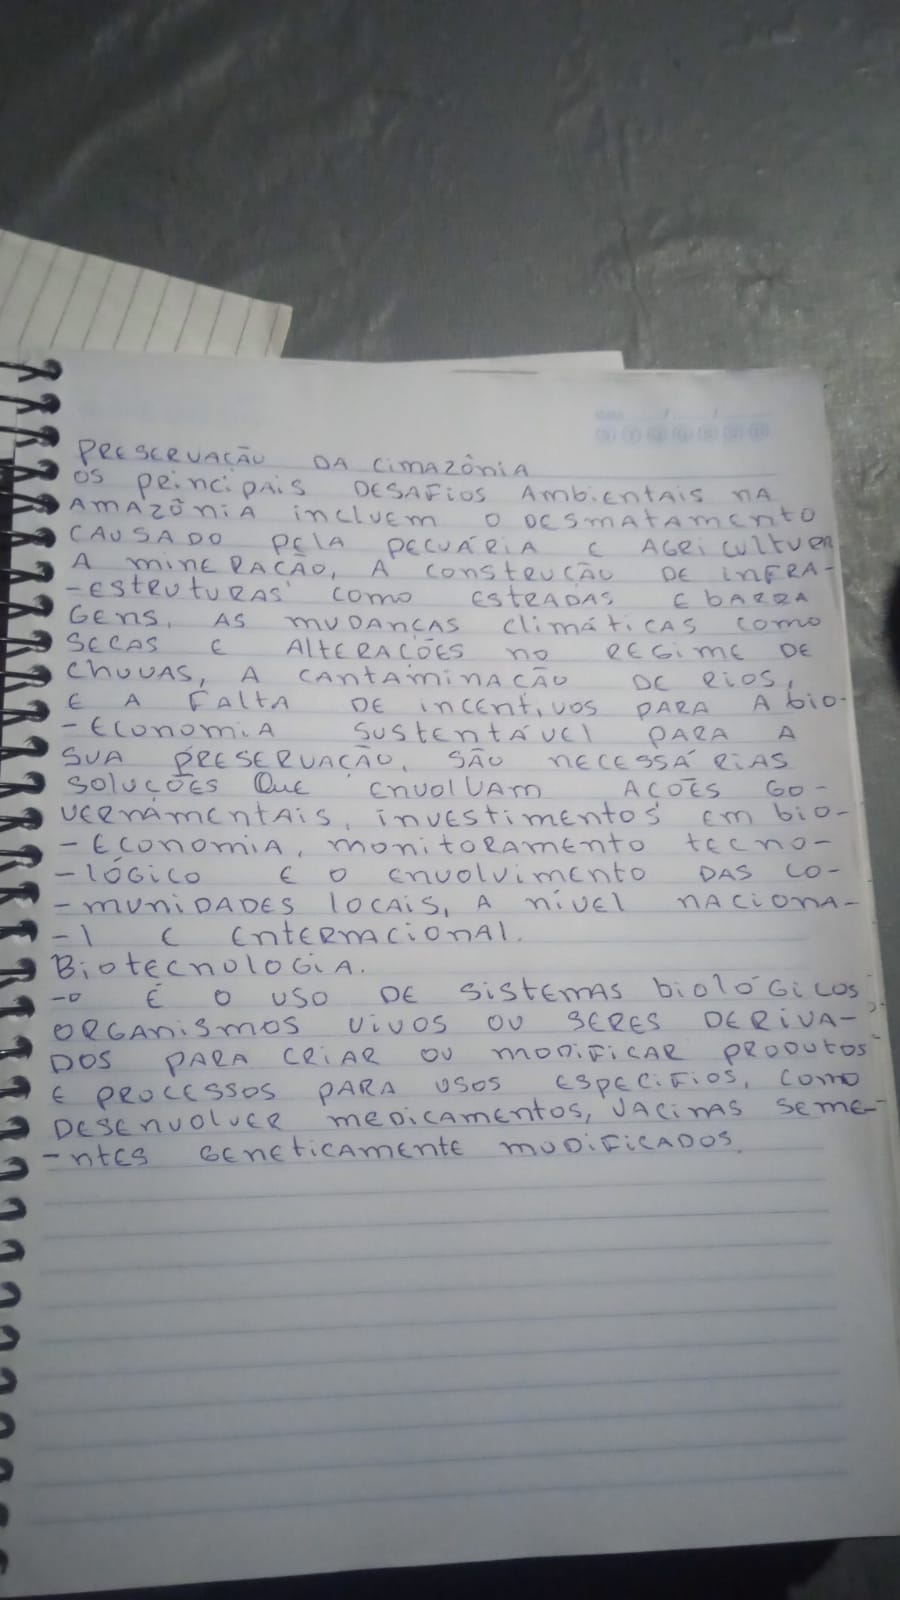 PRESERVAÇÃO DA CIMAZÔNIA
OS PRINCIPAIS DESAFIOS AMBIENTAIS NA
AMAZÔNIA INCLUEM O DESMATAMENTO
CAUSADO PELA PECUÁRIA E AGRICULTUER
A MINERAÇÃO, A CONSTRUÇÃO DE INFRA-
-ESTRUTURAS COMO ESTRADAS E BARRA
GENS, AS MUDANÇAS CLIMÁTICAS COMO
SECAS E ALTERAÇÕES NO REGIME DE
CHUVAS, A CANTAMINAÇÃO DE RIOS,
E A FALTA DE INCENTIVOS PARA A BIO-
-ECONOMIA SUSTENTÁVEL PARA A
SUA PRESERVAÇÃO, SÃO NECESSÁRIAS
SOLUÇÕES QUE ENVOLVAM AÇÕES GO-
VERNAMENTAIS, INVESTIMENTOS EM BIO-
-ECONOMIA, MONITORAMENTO TECNO-
-LÓGICO E O ENVOLVIMENTO DAS CO-
-MUNIDADES LOCAIS, A NÍVEL NACIONA-
-L E ENTERNACIONAL.
BIOTECNOLOGIA.
-o É O USO DE SISTEMAS BIOLÓGICOS,
ORGANISMOS VIVOS OU SERES DERIVA-
DOS PARA CRIAR OU MODIFICAR PRODUTOS
E PROCESSOS PARA USOS ESPECIFIOS, COMO
DESENVOLVER MEDICAMENTOS, VACINAS SEME-
-NTES GENETICAMENTE MODIFICADOS.